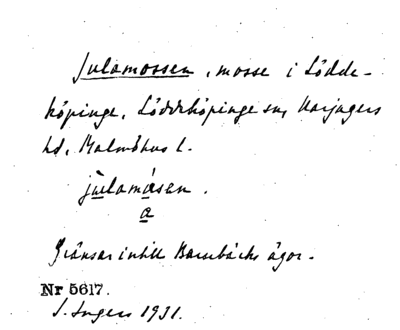 Julamossen, mosse i Lödde-
köpinge, Löddeköpinge sn, Harjagers
hd, Malmöhus l.
julamåsen.
a
Gränsar intill Barsebäcks ägor.
Nr 5617.
I. Ingers 1931.